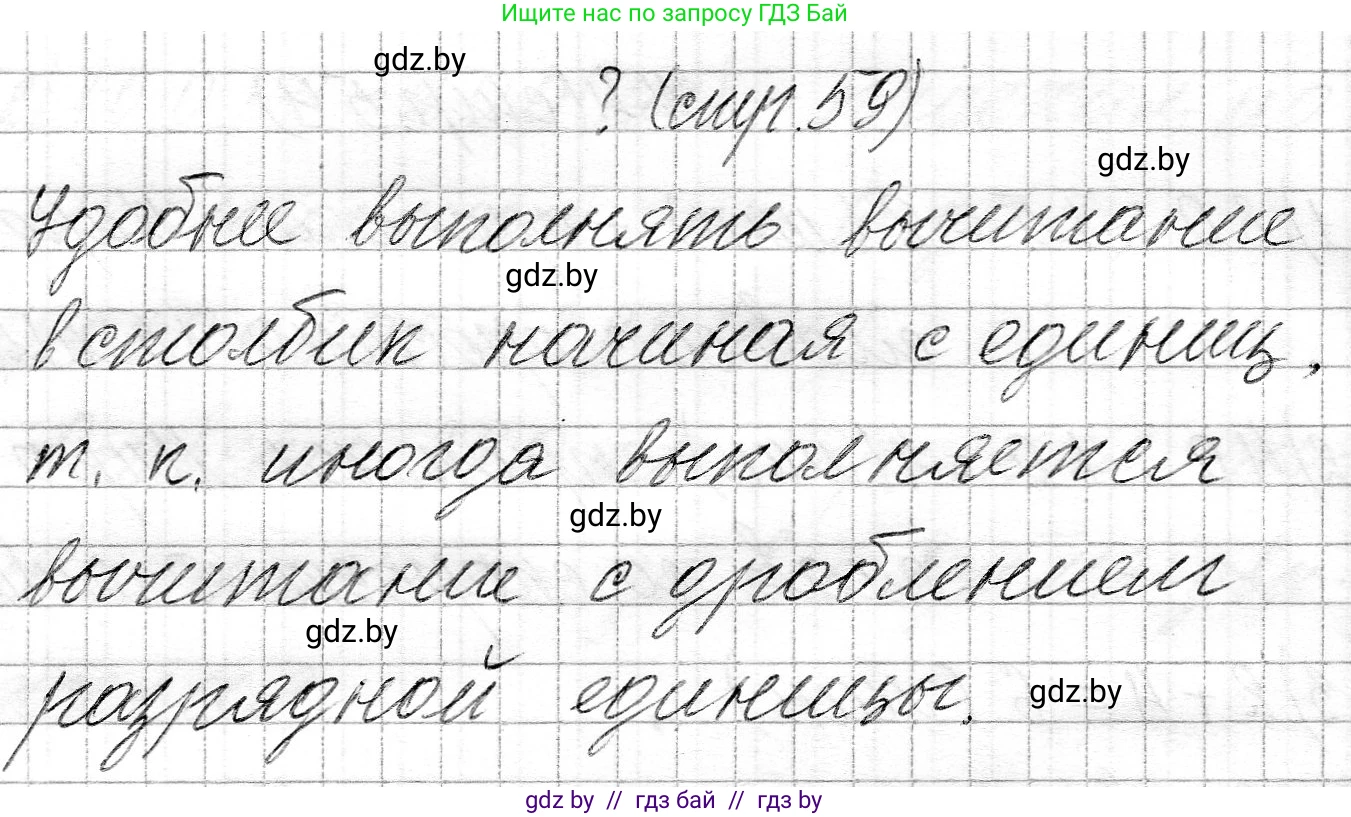 Ищите нас по запросу ГДЗ Бай
gdz.by
? (стр. 59)
gdz.by
Удобнее выполнять вычитание
gdz.by
в столбик начиная с единиц,
т. к. иногда выполняется
gdz.by
вычитание с дроблением
gdz.by
разрядной единицы.
gdz.by
gdz by // гдз бай // гдз by